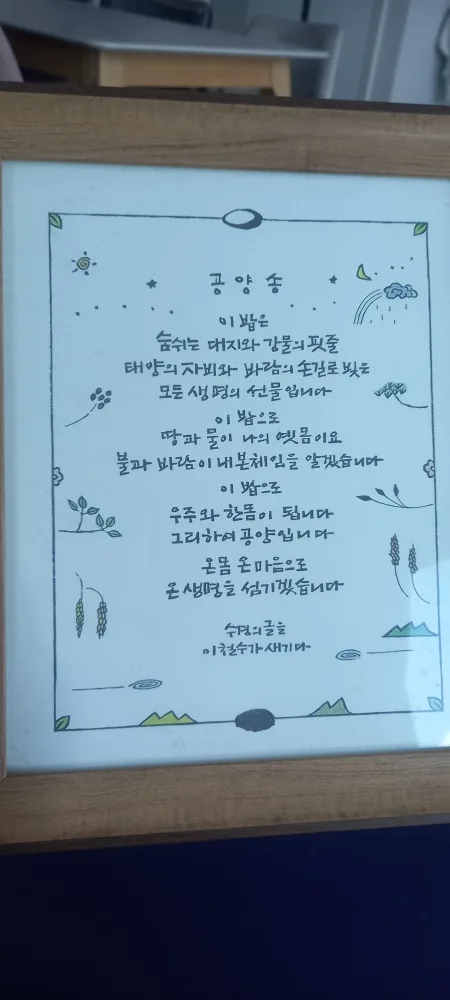 공양송
이 밥은
숨쉬는 대지와 강물의 핏줄
태양의 자비와 바람의 손길로 빚은
모든 생명의 선물입니다
이 밥으로
땅과 물이 나의 옛몸이요
불과 바람이 내 본체임을 알겠습니다
이 밥으로
우주와 한몸이 됩니다
그리하여 공양입니다
온몸 온마음으로
온생명을 섬기겠습니다
수경의 글을
이철수가 새기다